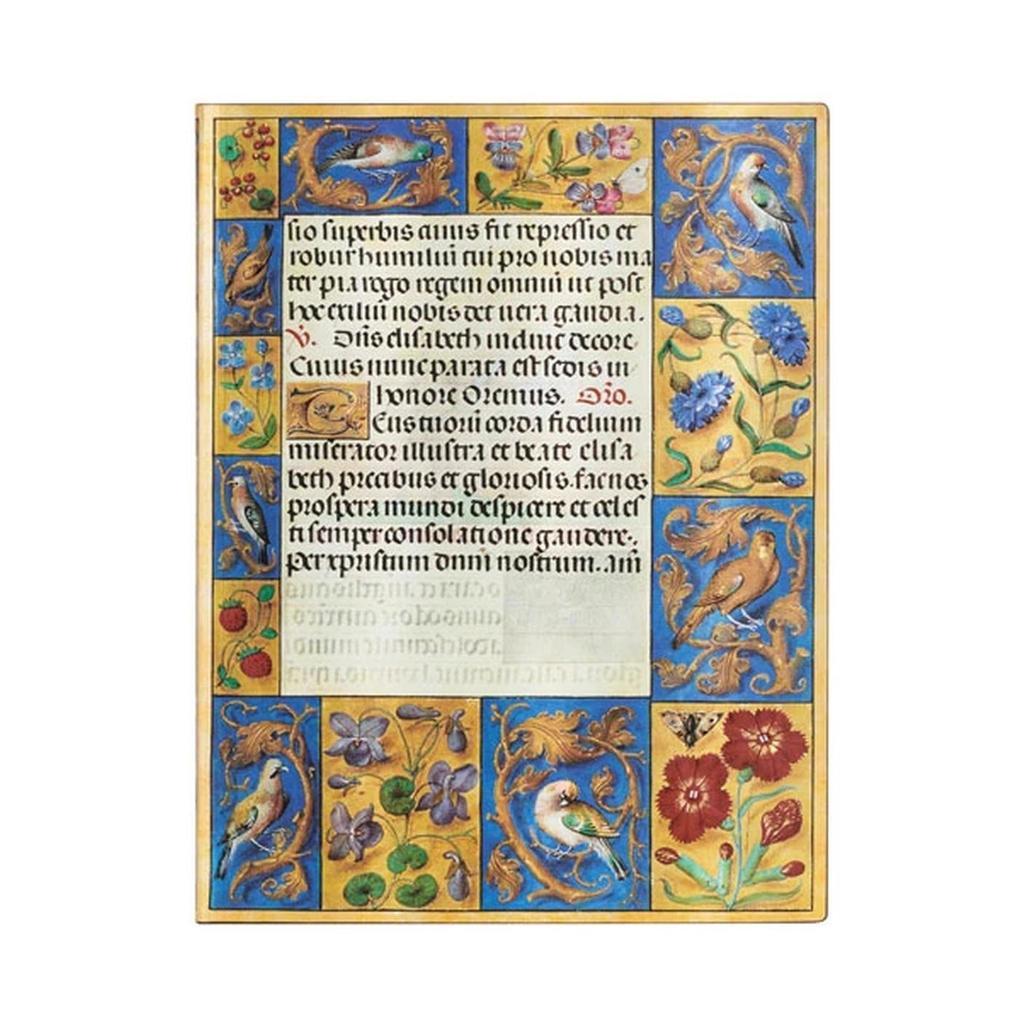 sio superbis cuius fit repressio et
robur humiliū tui pro nobis ma
ter pia rogo regem omniū ut post
hoc exiliū nobis det uera gaudia.
V. Dn̄s elisabeth induit decore
Cuius nunc parata est sedis in
honore Oremus. Oro.
Eus tuorū corda fidelium
miserator illustra et beate elisa
beth precibus et gloriosis. fac nos
prospera mundi despicere et celes
ti semper consolatione gaudere.
Per xpristum dnm̄ nostrum. am̄